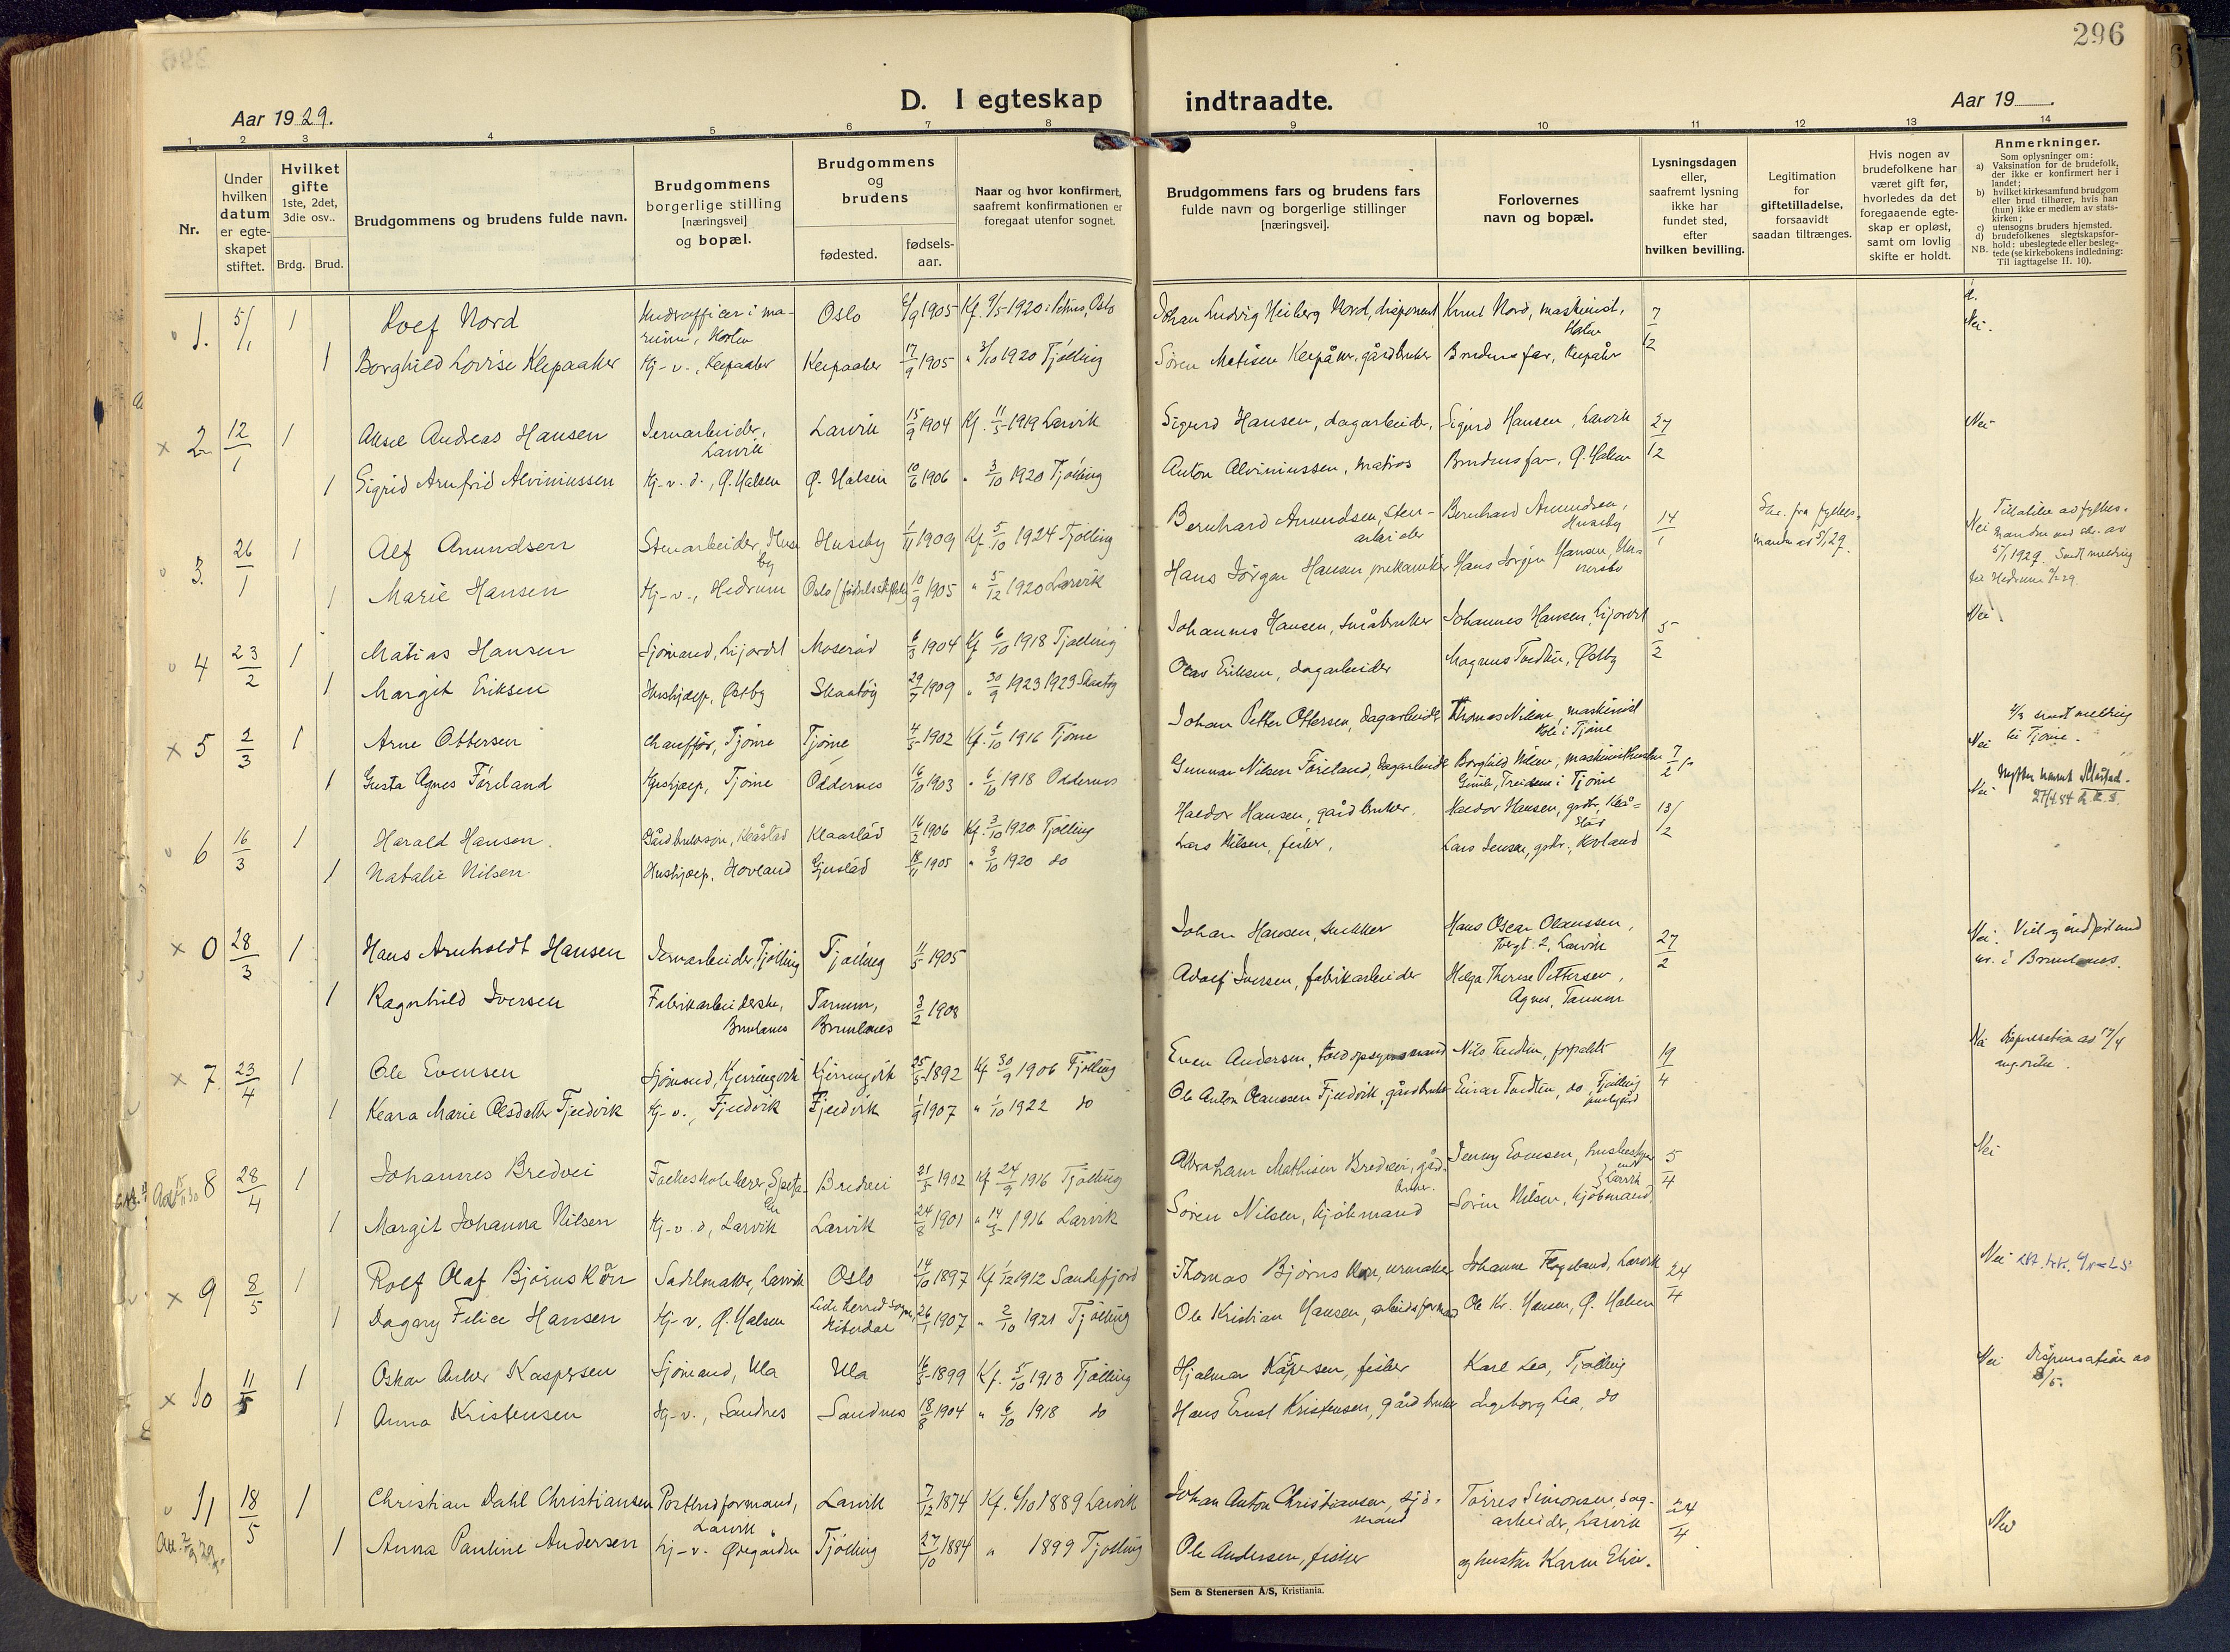 296
D. I egteskap indtraadte.
Aar 1929.
Aar 19
1 2 3 4 5 6 7 8 9 10 11 12 13 14
Nr.
Under hvilken datum er egteskapet stiftet.
Hvilket gifte 1ste, 2det, 3die osv..
Brdg. Brud.
Brudgommens og brudens fulde navn.
Brudgommens borgerlige stilling [næringsvei] og bopæl.
Brudgommens og brudens
fødested.
fødsels-aar.
Naar og hvor konfirmert, saafremt konfirmationen er foregaat utenfor sognet.
Brudgommens fars og brudens fars fulde navn og borgerlige stillinger [næringsvei].
Forlovernes navn og bopæl.
Lysningsdagen eller, saafremt lysning ikke har fundet sted, efter hvilken bevilling.
Legitimation for giftetilladelse, forsaavidt saadan tiltrænges.
Hvis nogen av brudefolkene har været gift før, hvorledes da det foregaaende egteskap er opløst, samt om lovlig skifte er holdt.
Anmerkninger.
Som oplysninger om:
a) Vaksination for de brudefolk, der ikke er konfirmert her i landet;
b) hvilket kirkesamfund brudgom eller brud tilhører, hvis han (hun) ikke er medlem av statskirken;
c) utensogns bruders hjemsted.
d) brudefolkenes slegtskapsforhold: ubeslegtede eller beslegtede (se kirkebokens indledning: NB. Til iagttagelse II. 10).
1. 5/1 1 Rolf Nord Underofficer i marinen, Horten Oslo 1905 Kf. 9/5 1920 i Petrus, Oslo Johan Ludvig Heiberg Nord, disponent Knut Nord, maskinist, 7/12 Nei.
1 Borghild Lovise Klepaaker Hj-v., Klepaaker Klepaaker 17/9 1905 " 3/10 1920 Tjølling Søren Matisen Klepåker, gårdbruker Brudens far, Klepåker
2 12/1 1 Aksel Andreas Hansen Jernarbeider, Larvik Larvik 15/9 1904 Kf. 11/5 1919 Larvik Sigurd Hansen, dagarbeider, Sigurd Hansen, Larvik 27/12 Nei
1 Sigrid Arnfrid Alviniussen Hj-v. d., Ø. Halsen Ø. Halsen 10/6 1906 " 3/10 1920 Tjølling Anton Alviniussen, matros Brudens far, Ø. Halsen
3. 26/1 1 Alf Amundsen Stenarbeider, Huseby Huseby 1/11 1909 Kf 5/10 1924 Tjølling Bernhard Amundsen, stenarbeider Bernhard Amundsen, Huseby 14/1 Skr. fra fylkesmanden av 5/1 29. Nei Tillatelse av fylkesmanden ved skr. av 5/1 1929. Sendt melding til Hedrum
1 Marie Hansen Hj-v., Hedrum Oslo 10/9 1905 " 5/12 1920 Larvik Hans Jørgen Hansen, mekaniker Hans Jørgen Hansen,
4 23/2 1 Matias Hansen Sjømand, Lijordet Moserød 1904 Kf 6/10 1918 Tjølling Johannes Hansen, småbruker Johannes Hansen, Lijordet 5/2 Nei
1 Margit Eriksen Hushjælp, Østby Skaatøy 29/7 1909 " 30/9 1923 1923 Skaatøy Olav Eriksen, dagarbeider Magnus Tvedten, Østby
5 2/3 1 Arne Ottersen Chauffør, Tjøme Tjøme 4/5 1902 Kf. 6/10 1916 Tjøme Johan Petter Ottersen, dagarbeider Thomas Nilsen, maskinist i Tjøme Nei 4/3 sendt melding til Tjøme.
1 Gusta Agnes Føreland Hushjælp, Tjøme Oddernes 16/10 1903 " 6/10 1918 Oddernes Gunnar Nilsen Føreland, dagarbeider Borghild Nilsen, i Tjøme 7/2
6 16/3 1 Harald Hansen. Gårdbrukersøn, Klåstad Klaastad 16/2 1906 Kf. 3/10 1920 Tjølling Haldor Hansen, gårdbruker. Haldor Hansen, grdbr., Klåstad 13/2 Nei
1 Natalie Nilsen Hushjælp, Hovland Gjerstad 18/11 1905 " 3/10 1920 do Lars Nilsen, fisker, Lars Jensen, grdbr., Hovland
0 28/3 1 Hans Arnholdt Hansen Jernarbeider, Tjølling Tjølling 11/5 1905 Johan Hansen, snekker Hans Oscar Olaussen, Torvgt. 2, Larvik 27/2 Nei. Viet og indført med nr. i Brunlanes.
1 Ragnhild Iversen Fabrikarbeiderske, Brunlanes Tanum, Brunlanes 3/2 1908 Adolf Iversen, fabrikarbeider Helga Therese Pettersen, Agnes, Tanum
7. 23/4 1 Ole Evensen Sjømand, Kjerringvik Kjerringvik 25/5 1892 Kf 30/9 1906 Tjølling Even Andersen, toldopsynsmand Nils Tvedten, forpakter 19/4 Nei Dispensation av 17/4
1 Klara Marie Olsdatter Fjeldvik Hj-v., Fjeldvik Fjeldvik 1/9 1907 " 1/10 1922 do Ole Anton Olaussen Fjeldvik, gårdbruker Einar Tvedten, do, Tjølling prestegård
8 28/4 1 Johannes Bredvei Folkeskolelærer, Bredvei 21/5 1902 Kf 24/9 1916 Tjølling Abraham Mathisen Bredvei, gårdbruker. Jenny Evensen, 5/4 Nei
1 Margit Johanna Nilsen Hj-v. d, Larvik Larvik 24/8 1901 " 14/5 1916 Larvik Søren Nilsen, kjøbmand Søren Nilsen, kjøbmand
9 8/5 1 Rolf Olaf Bjørnskjær Sadelmaker, Larvik Oslo 14/10 1897 Kf 1/12 1912 Sandefjord Thomas Bjørnskjær, urmaker Johanne Fogeland, Larvik 24/4 Nei
1 Dagny Felice Hansen Hj-v. Ø. Halsen 26/1 1907 " 2/10 1921 Tjølling Ole Kristian Hansen, arbeidsformand Ole Kr. Hansen, Ø. Halsen
10 11/5 1 Oskar Anker Kaspersen Sjømand, Ula Ula 16/5 1899 Kf. 5/10 1913 Tjølling Hjalmar Kaspersen, fisker Karl Lea, Tjølling Nei Dispensation av 8/5.
1 Anna Kristensen Hj-v., Sandnes Sandnes 18/8 1904 " 6/10 1918 do Hans Ernst Kristensen, gårdbruker Ingeborg Lea, do
11 18/5 1 Christian Dahl Christiansen Postbudformand, Larvik Larvik 7/12 1874 Kf. 6/10 1889 Larvik Johan Anton Christiansen, sjømand Torres Simonsen, dagarbeider, Larvik 24/4 Nei
1 Anna Pauline Andersen Hj-v. Ødegården Tjølling 27/10 1884 " 1899 Tjølling Ole Andersen, fisker og hustru Karen Elise.
Sem & Stenersen A/S, Kristiania.